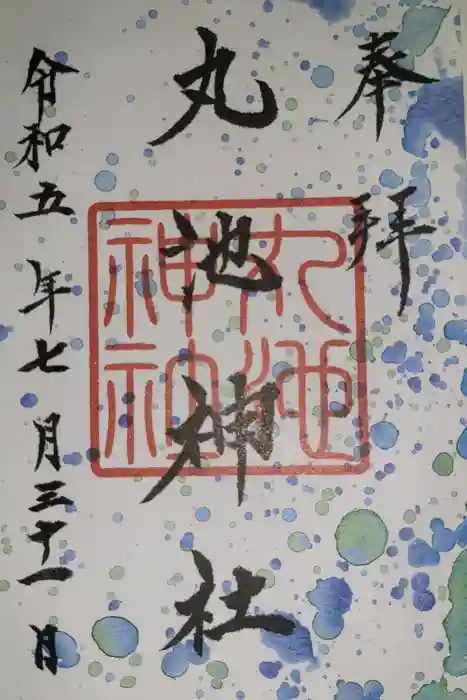 奉拝
丸池神社
丸池神社
令和五年七月三十一月